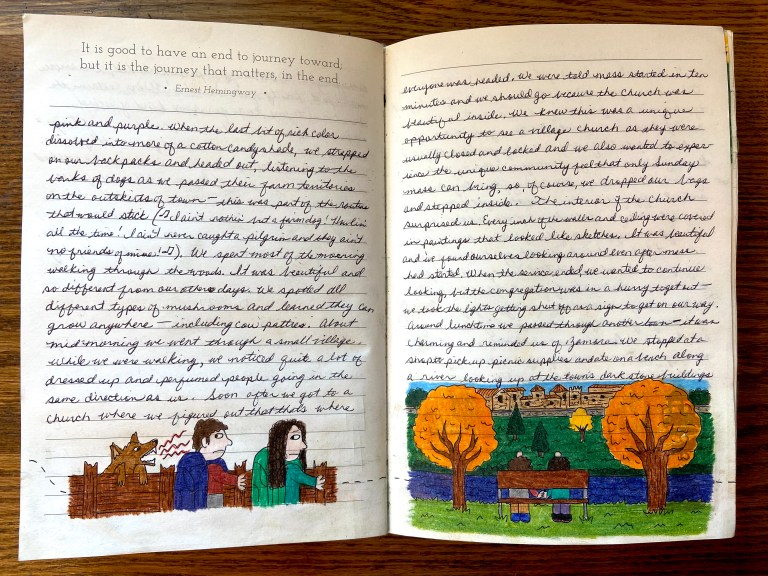 It is good to have an end to journey toward;
but it is the journey that matters, in the end
• Ernest Hemingway •
pink and purple. When the last bit of rich color
dissolved into more of a cotton candy shade, we strapped
on our backpacks and headed out, listening to the
barks of dogs as we passed their farm territories
on the outskirts of town — this was part of the routine
that would stick (♫ I ain't nothin' but a farm dog! Howlin'
all the time! I ain't never caught a pilgrim and they ain't
no friends of mine! ♫). We spent most of the morning
walking through the woods. It was beautiful and
so different from our other days. We spotted all
different types of mushrooms and learned they can
grow anywhere — including cow patties. About
midmorning we went through a small village.
While we were walking, we noticed quite a lot of
dressed up and perfumed people going in the
same direction as us. Soon after we got to a
church where we figured out that that's where
everyone was headed. We were told mass started in ten
minutes and we should go because the church was
beautiful inside. We knew this was a unique
opportunity to see a village church as they were
usually closed and locked and we also wanted to exper-
ience the unique community feel that only Sunday
mass can bring, so, of course, we dropped our bags
and stepped inside. The interior of the church
surprised us. Every inch of the walls and ceiling were covered
in paintings that looked like sketches. It was beautiful
and we found ourselves looking around even after mass
had started. When the service ended, we wanted to continue
looking, but the congregation was in a hurry to get out —
we took the lights getting shut off as a sign to get on our way.
Around lunchtime we passed through another town — it was
charming and reminded us of Zamora. We stopped at a
shop to pick up picnic supplies and ate on a bench along
a river looking up at the town's dark stone buildings